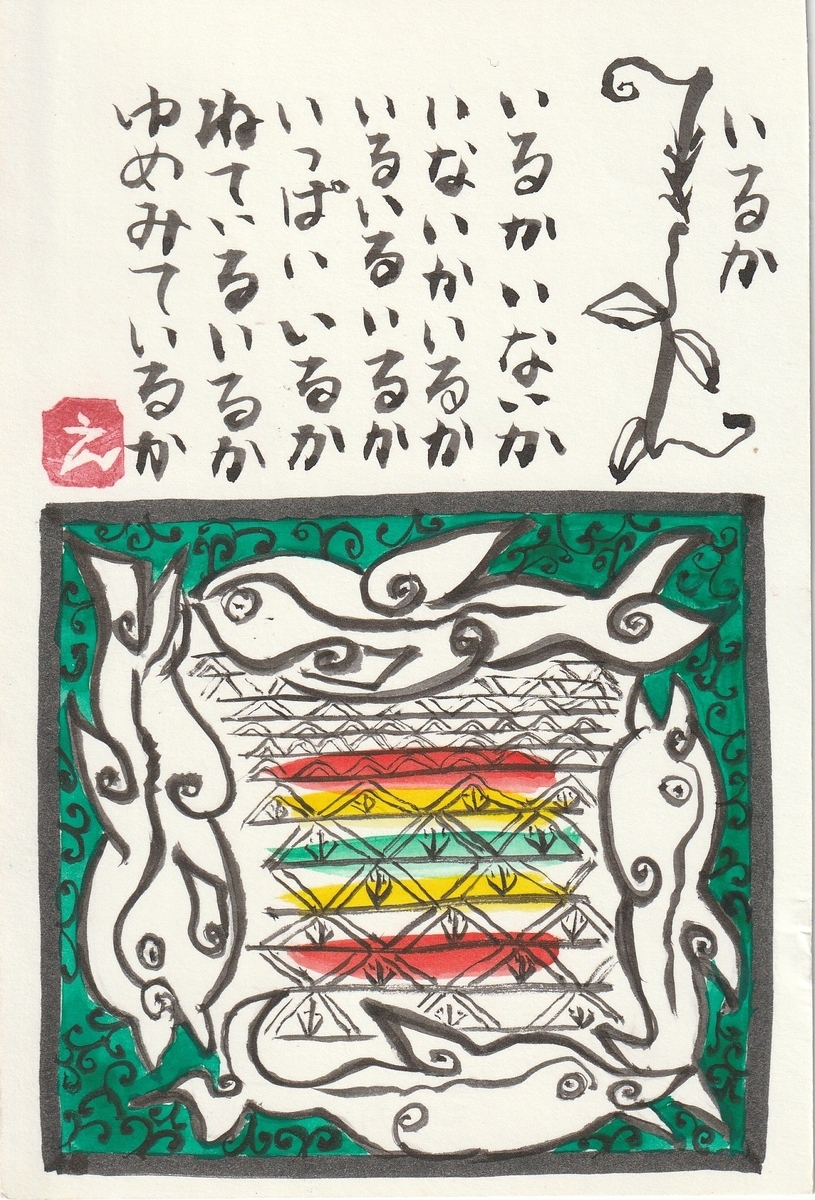 いるか
いるか いないか
いないか いるか
いるいる いるか
いっぱい いるか
ねているいるか
ゆめみているか
え